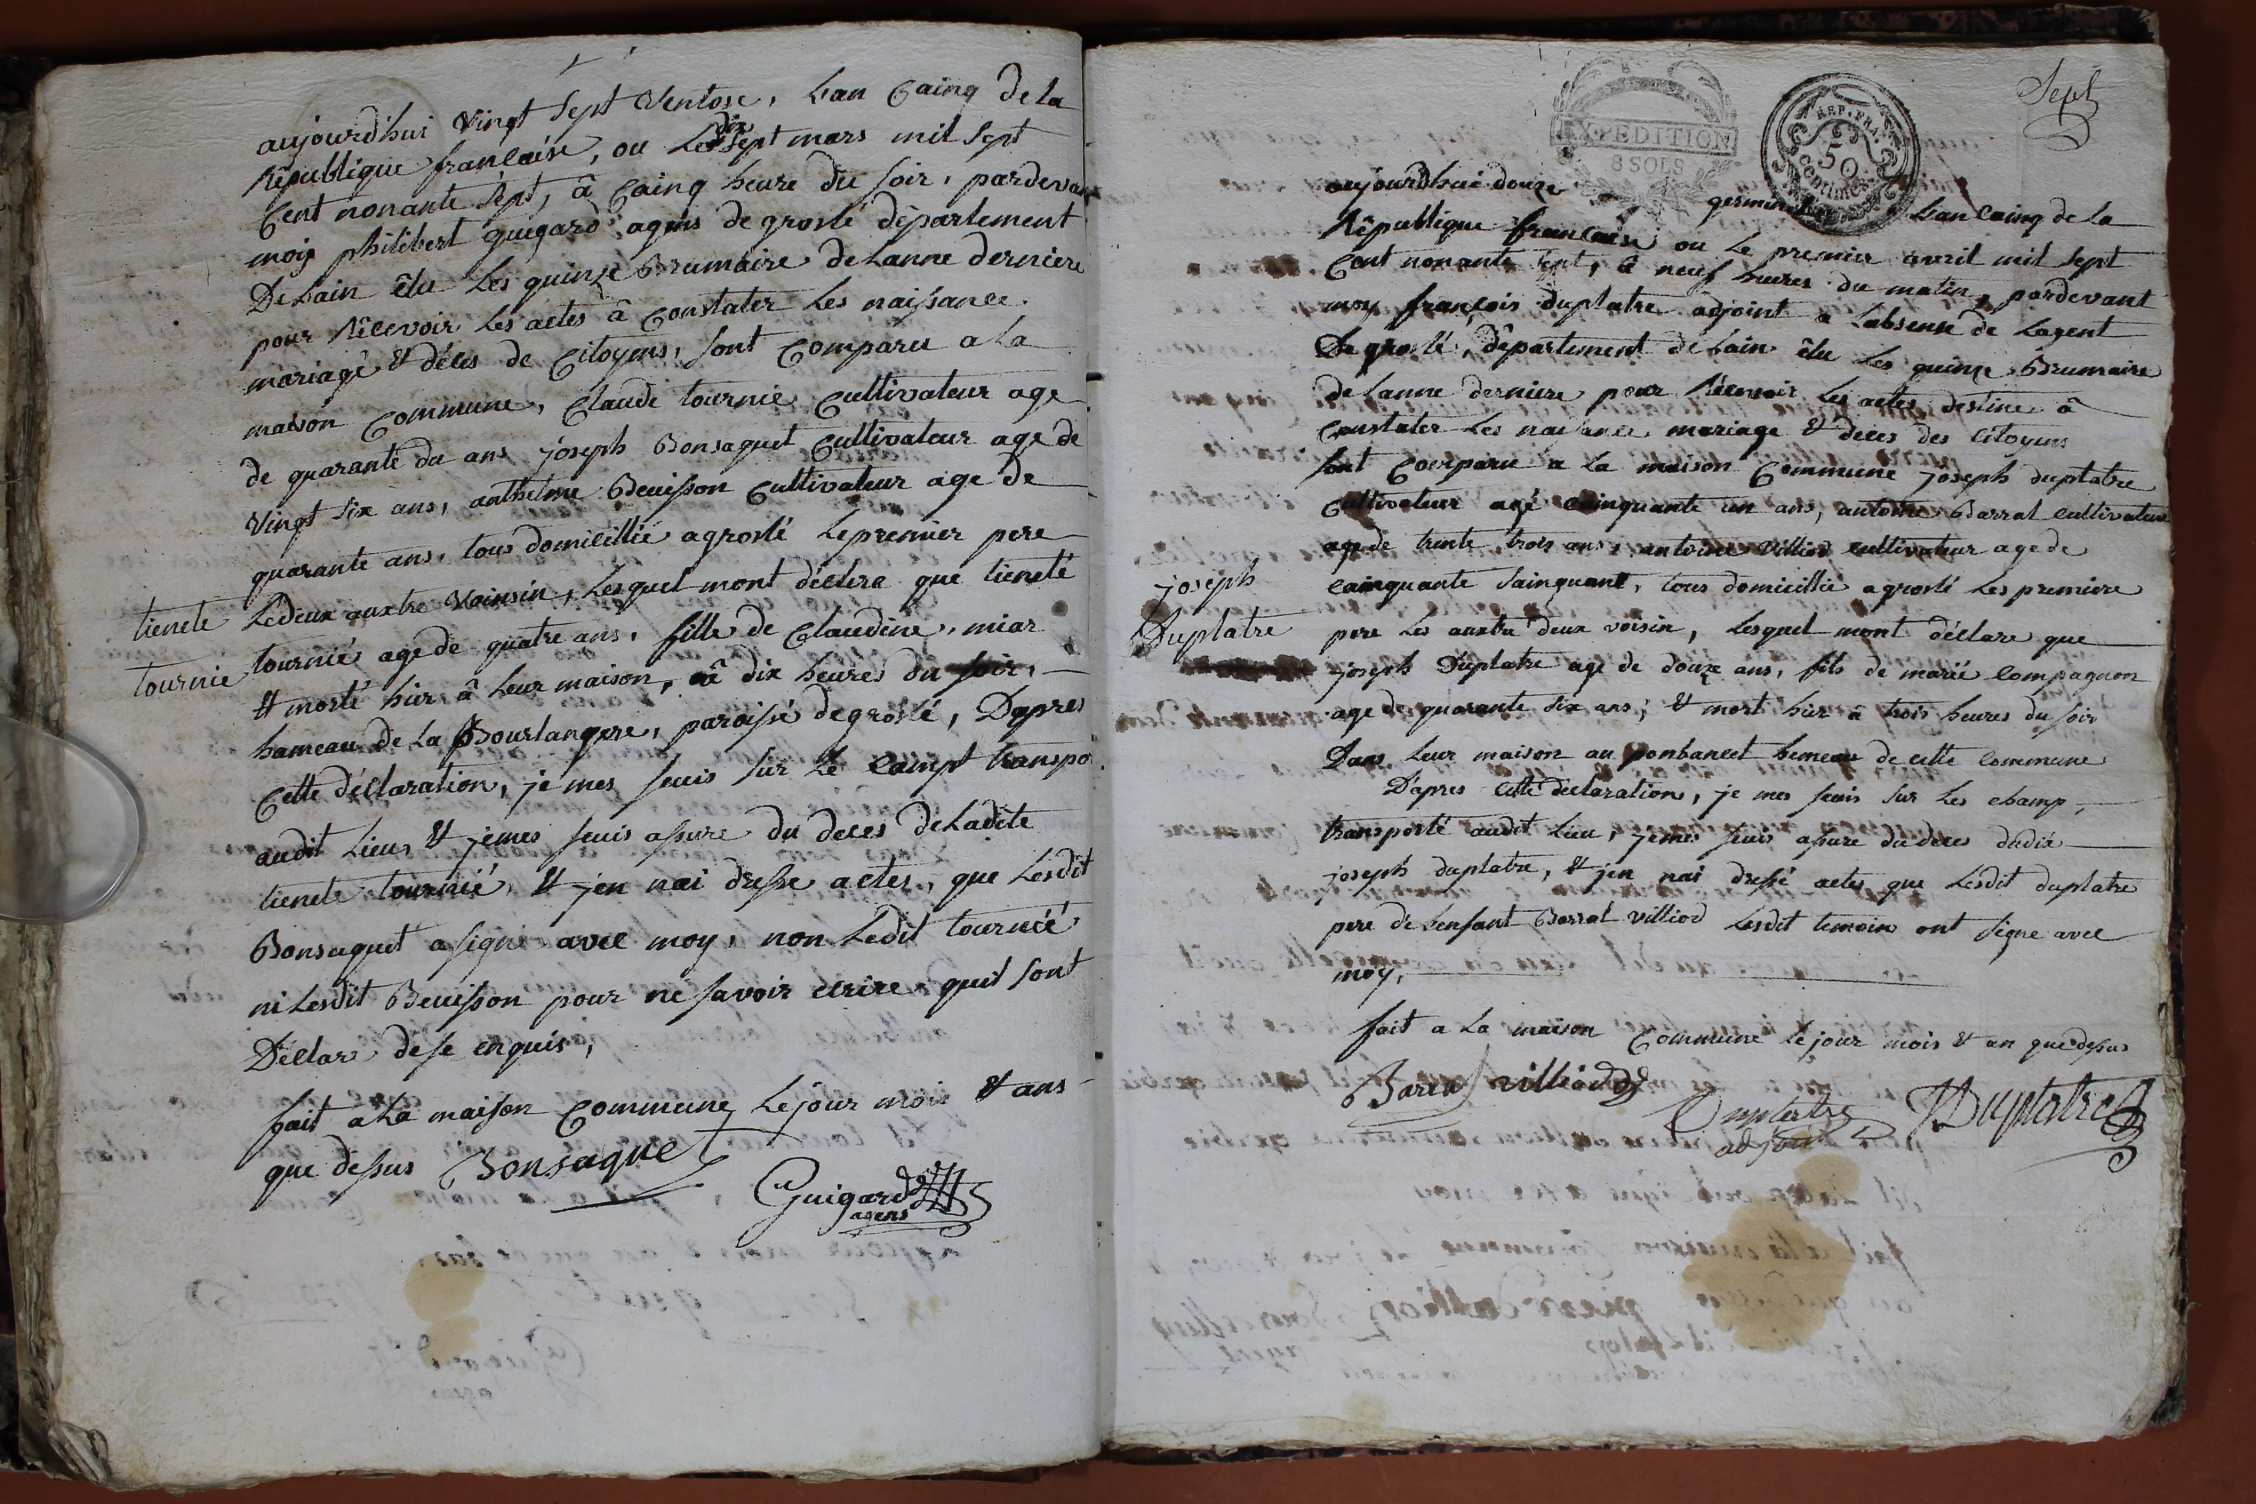 aujourd'hui vingt sept ventose, Lan Cainq de la
République francaise, ou Les dix sept mars mil sept
Cent nonante sept, â Cainq heure du soir, pardevant
moy philibert guigard agens de groslé département
De Lain êlu Les quinze Brumaire de Lanne derniere
pour Rêcevoir Les actes â Constater Les naissance
mariage & déces de Citoyens, sont Comparu a La
maison Commune, Claude tournie Cultivateur age
de quarante du ans joseph Bonsaquet Cultivateur age de
vingt six ans, anthelme Beuisson Cultivateur age de
quarante ans, tous domicillié a groslé Le premier pere
Le deux auxtre voinsin, Lesquel mont déclere que tienete
tienete
tournie
tournié age de quatre ans, fille de Claudine, miar
& morte hier â Leur maison, â dix heures du soir,
hameau de La Bourlangere, paroisse de groslé, Dapres
Cette déclaration, je mes suis sur Le Campt transpo
audit Lieu, & jemes suis assure du deces de Ladite
tienete tournié, & jen nai dresse actes, que Lesdit
Bonsaquet a signe avec moy, non Ledit tournié
ni Lesdit Beuisson pour ne savoir ecrire quil sont
Déclar de se enquis,
fait a La maison Commune Le jour mois & ans
que dessus Bonsaquet
Guigard
agens
Sept
EXPEDITION
8 SOLS
REP. FRA.
50
centimes
aujourdhui douze germinal Lan Cainq de La
République francaise ou Le premier avril mil sept
Cent nonante sept, â neuf heures du matin, pardevant
moy françois duplatre adjoint a Labsense de Lagent
De groslé, département de Lain êlu Les quinze Brumaire
de Lanne derniere pour Récevoir Les actes destine â
Constater Les naissance mariage & déces des Citoyens
sont Comparu a La maison Commune joseph duplatre
Cultivateur agé Cainquante un ans, antoine Barral Cultivateur
age de trente trois ans, antoine villiod Cultivateur age de
Cainquante Sainquant, tous domicillié a groslé Les premiere
joseph
Duplatre
pere Les auxtre deux voisin, Lesquel mont déclare que
joseph Duplatre age de douze ans, fils de marié Compagnon
age de quarante six ans, & mort hier â trois heures du soir
Dans Leur maison au ponbancet hemeau de cette Commune
D'apres Cette declaration, je mes suis sur Les champ,
transporté audit Lieu, jemes suis assure du deces dudit
joseph duplatre, & jen nai dressé actes que Lesdit duplatre
pere de Lenfant Barral villiod Lesdit temoin ont signe avec
moy,
fait a La maison Commune Le jour mois & an que dessus
Baral villiod
Duplatre
adjoint
JDuplatre